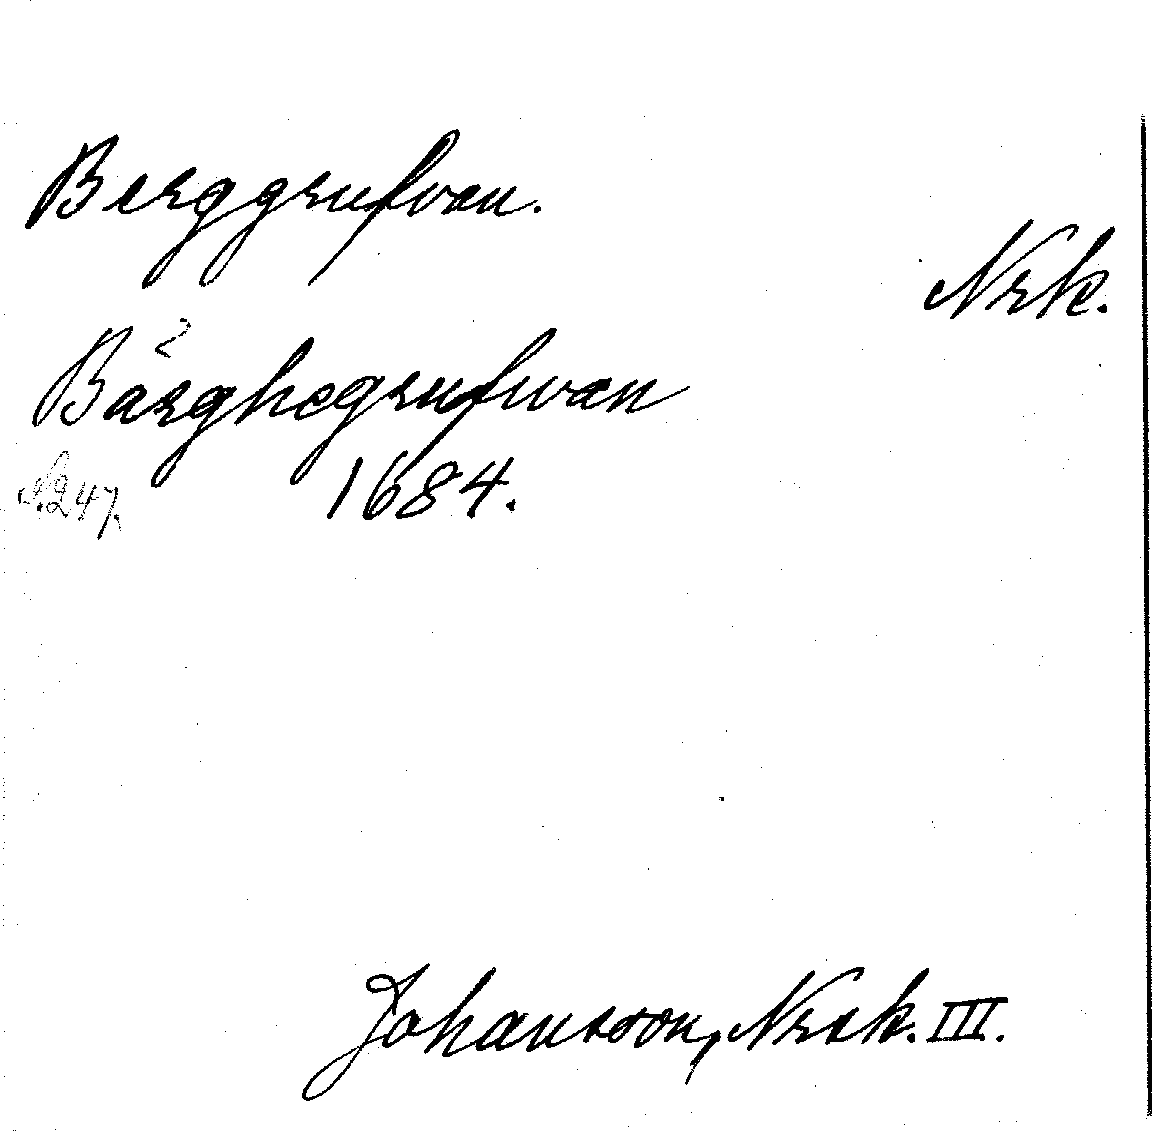 Berggrufvan.
Nrk.
Bärghegrufwan
1684.
N. 247.
Johansson, Norsk. III.